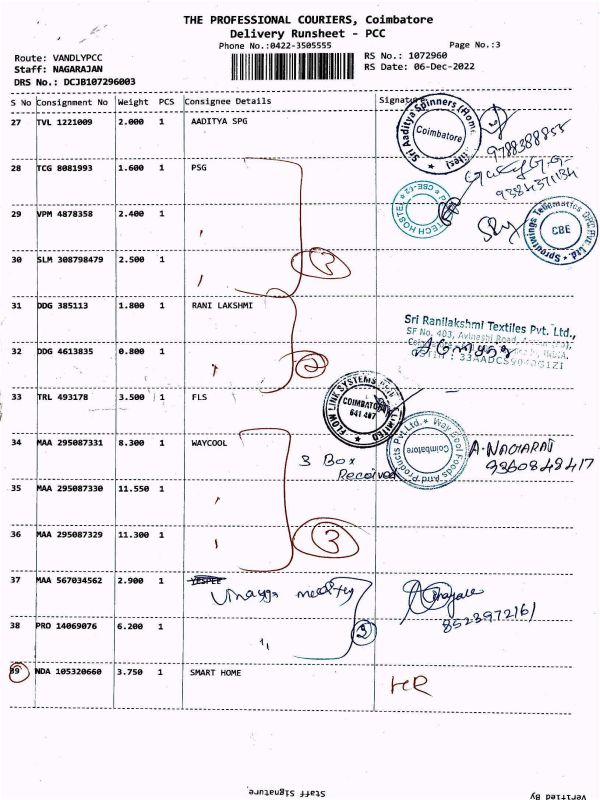 THE PROFESSIONAL COURIERS, Coimbatore
Delivery Runsheet - PCC
Phone No.:0422-3505555
Page No.:3
Route: VANDLYPCC
RS No.: 1072960
Staff: NAGARAJAN
RS Date: 06-Dec-2022
DRS No.: DCJB107296003
S No Consignment No Weight PCS Consignee Details Signature
27 TVL 1221009 2.000 1 AADITYA SPG
Sri Aaditya Spinners
Coimbatore
9788388855
28 TCG 8081993 1.600 1 PSG
9384371134
TECH HOSTEL
29 VPM 4878358 2.400 1 "
Sproutwings Telematics OPC Pvt. Ltd.
CBE
30 SLM 308798479 2.500 1 "
3
31 DDG 385113 1.800 1 RANI LAKSHMI
Sri Ranilakshmi Textiles Pvt. Ltd.,
SF No. 403, Avinashi Road,
32 DDG 4613835 0.800 1 "
2
33 TRL 493178 3.500 1 FLS
FLOW LINK SYSTEMS LIMITED
COIMBATORE
641 407
34 MAA 295087331 8.300 1 WAYCOOL
3 Box
Received
Waycool Foods And Products Pvt. Ltd.
Coimbatore
A. NAGARAJ
9360849417
35 MAA 295087330 11.550 1 "
36 MAA 295087329 11.300 1 "
3
37 MAA 567034562 2.900 1
8523972161
38 PRO 14069076 6.200 1 "
2
39 NDA 105320660 3.750 1 SMART HOME
HR
Staff Signature
Verified By